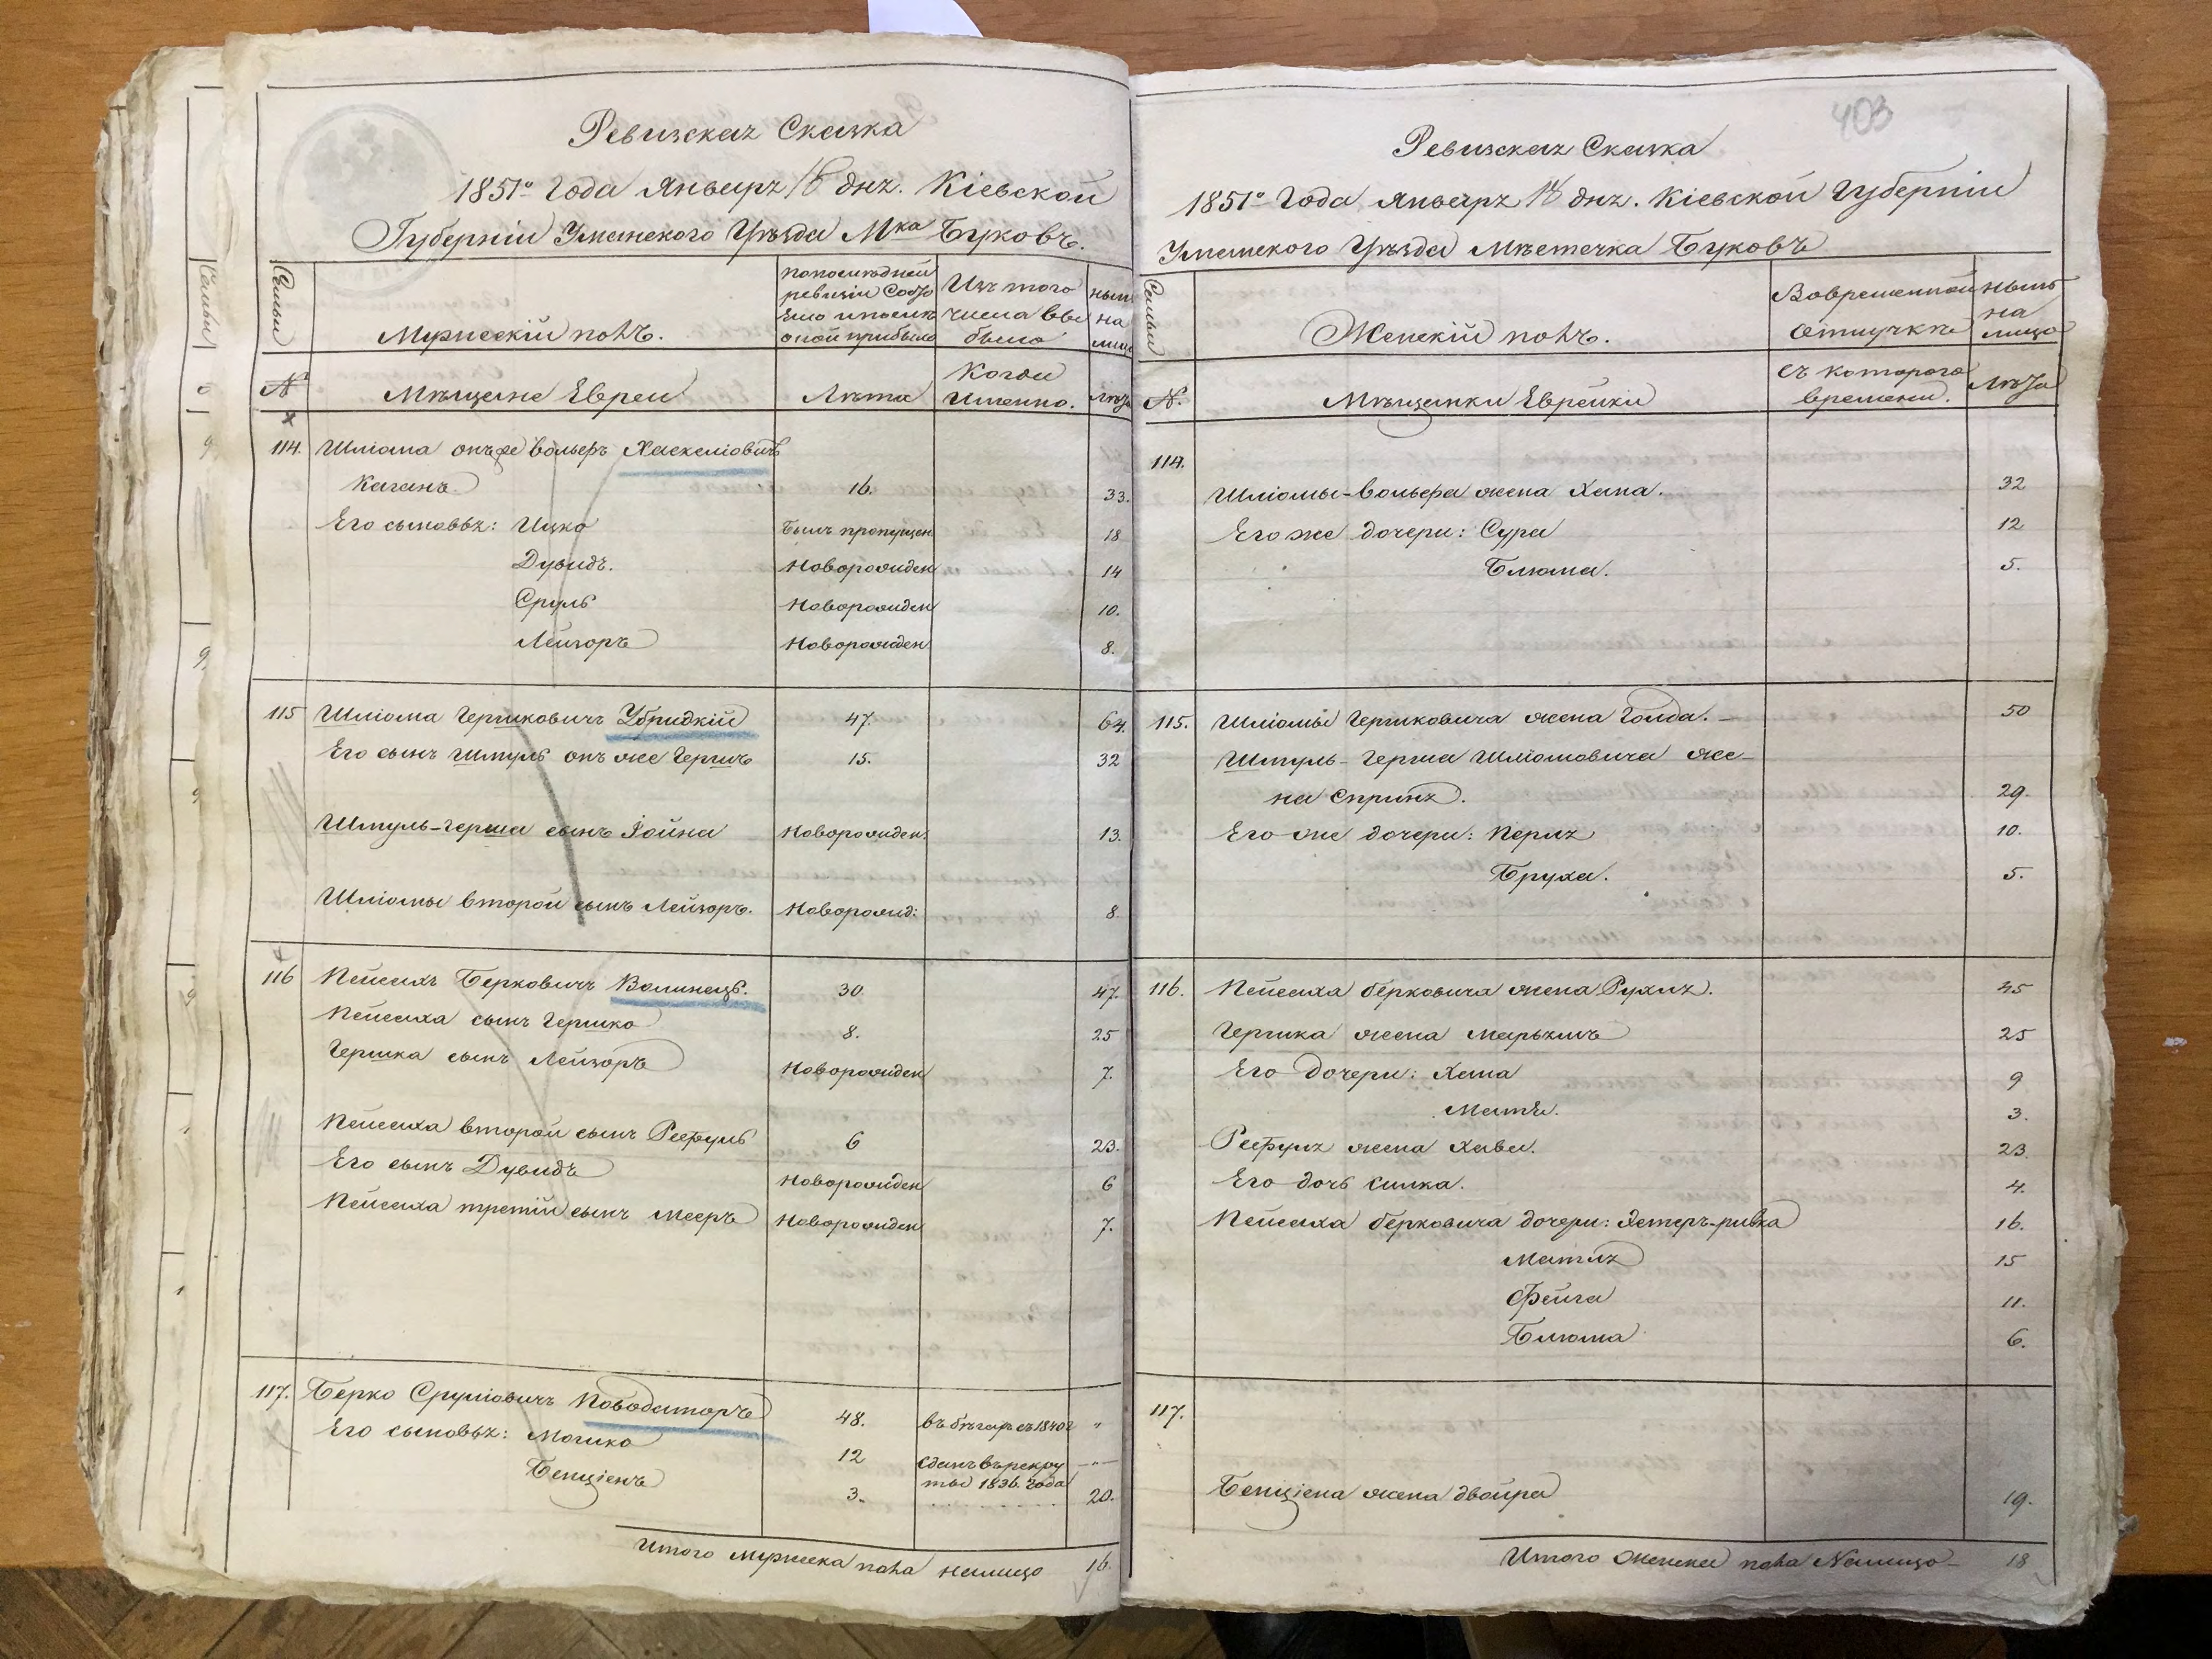 Ревизская Сказка
1851го Года Января 16 дня. Кіевской
Губерніи Уманскаго Уѣзда Мка Буковъ.
Семьи
Мужескій полъ.
По послѣдней
ревизіи состо
яло и послѣ
оной прибыло
Изъ того
числа вы
было
нынѣ
на
лицо
№
Мѣщане Евреи
Лѣта
Когда
Именно.
Лѣта
114. Шліома онъ же Вольфъ Хаскеліовичъ
Каганъ 16. 33.
Его сыновья: Ицко Былъ пропущен 18
Дувидъ. Новорожден 14
Сруль Новорожден 10.
Лейзоръ Новорожден 8.
115 Шліома Гершковичъ 47. 64.
Его сынъ Шмуль онъ же Гершъ 15. 32
Шмуль-Герша сынъ Іойна Новорожден. 13.
Шліомы второй сынъ Лейзоръ. Новорожд: 8
116 Пейсахъ Берковичъ Волинецъ. 30 47.
Пейсаха сынъ Гершко 8. 25
Гершка сынъ Лейзоръ Новорожден 7.
Пейсаха второй сынъ Рефуль 6 23.
Его сынъ Дувидъ Новорожден 6
Пейсаха третій сынъ Мееръ Новорожден 7.
117. Берко Сруліовичъ Новодаторъ 48. въ бѣгах съ 1840 г "
Его сыновья: Мошко 12 Сданъ въ рекру
ты 1836 Года
Бенціенъ 3. 20.
Итого мужеска пола налицо 16.
403
Ревизская Сказка
1851го Года Января 16 дня. Кіевской Губерніи
Уманскаго Уѣзда Мѣстечка Буковъ
Семьи
Женскій полъ.
Во временной
отлучкѣ
нынѣ
на
лицо
№.
Мѣщанки Еврейки
съ котораго
времени.
Лѣта
114.
Шліомы-Вольфа жена Хана. 32
Его же дочери: Сура 12
Блюма. 5.
115. Шліомы Гершковича жена Голда. 50
Шмуль-Герша Шліомовича же-
на Сприня. 29.
Его же дочери: Перля 10.
Бруха. 5.
116. Пейсаха Берковича жена Рухля. 45
Гершка жена Марьямъ 25
Его дочери: Хана 9
3.
Рефуля жена Хава. 23.
Его дочь Симка. 4.
Пейсаха Берковича дочери: Эстеръ-ривка 16.
Матля 15
Фейга 11.
Блюма 6.
117.
Бенціена жена Двойра 19.
Итого Женска пола Налицо 18